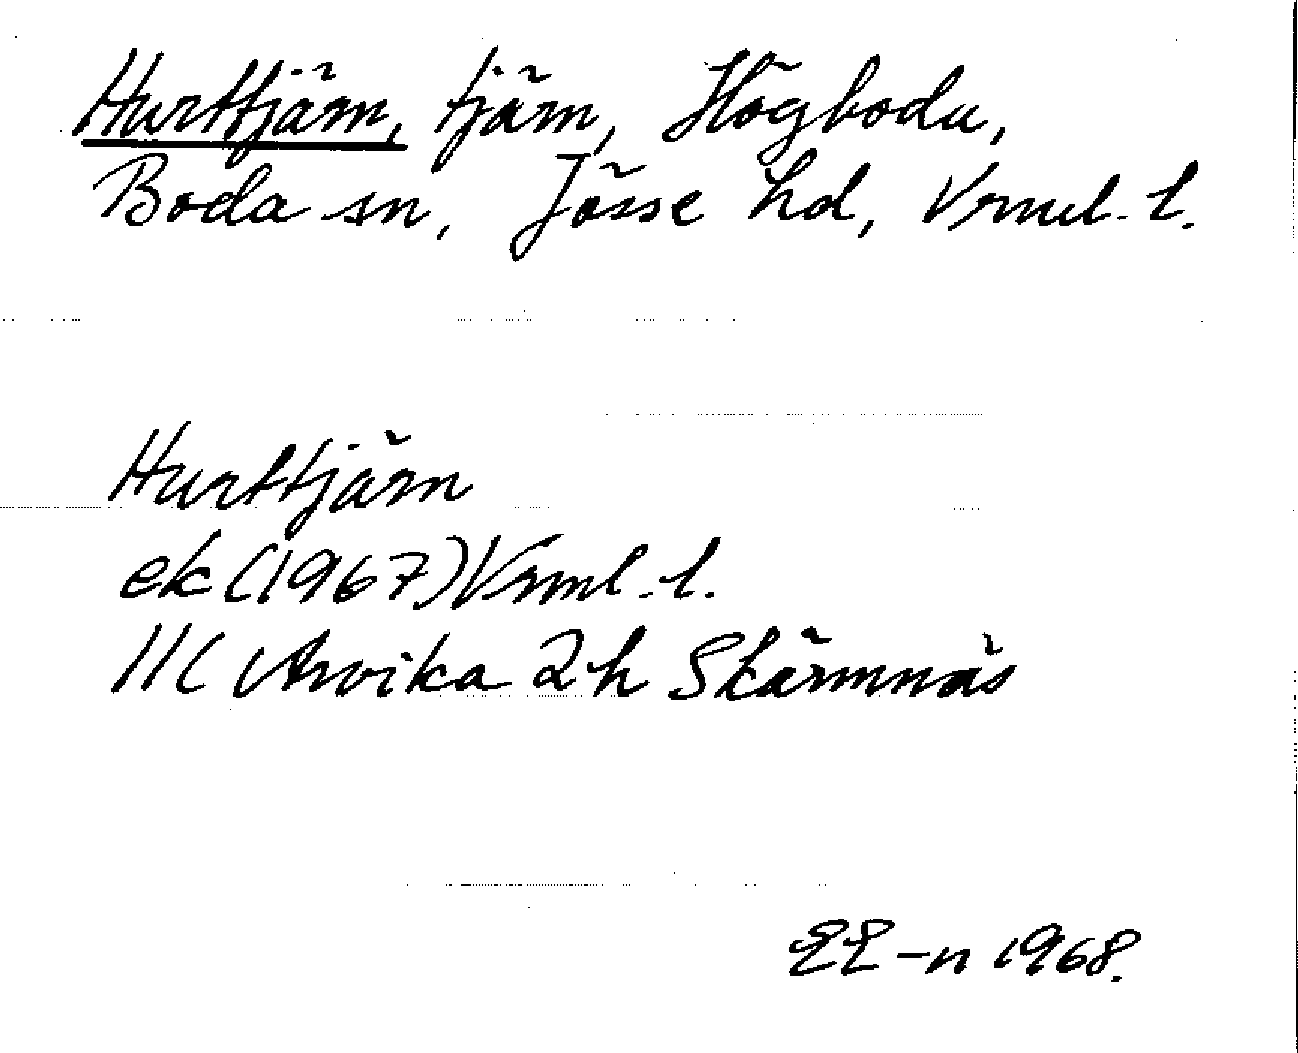 Hurttjärn, tjärn, Högboda,
Boda sn, Jösse hd, Vrml. l.
Hurttjärn
ek (1967) Vrml. l.
11C Arvika 2h Skärmnäs
EE-n 1968.